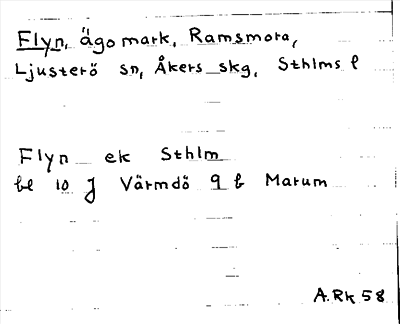 Flyn, ägomark, Ramsmora,
Ljusterö sn, Åkers skg, Sthlms l
Flyn ek Sthlm
bl 10 J Värmdö 9 b Marum
A.Rk 58